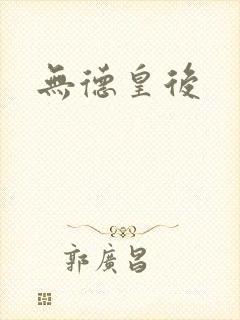 無德皇後
郭廣昌